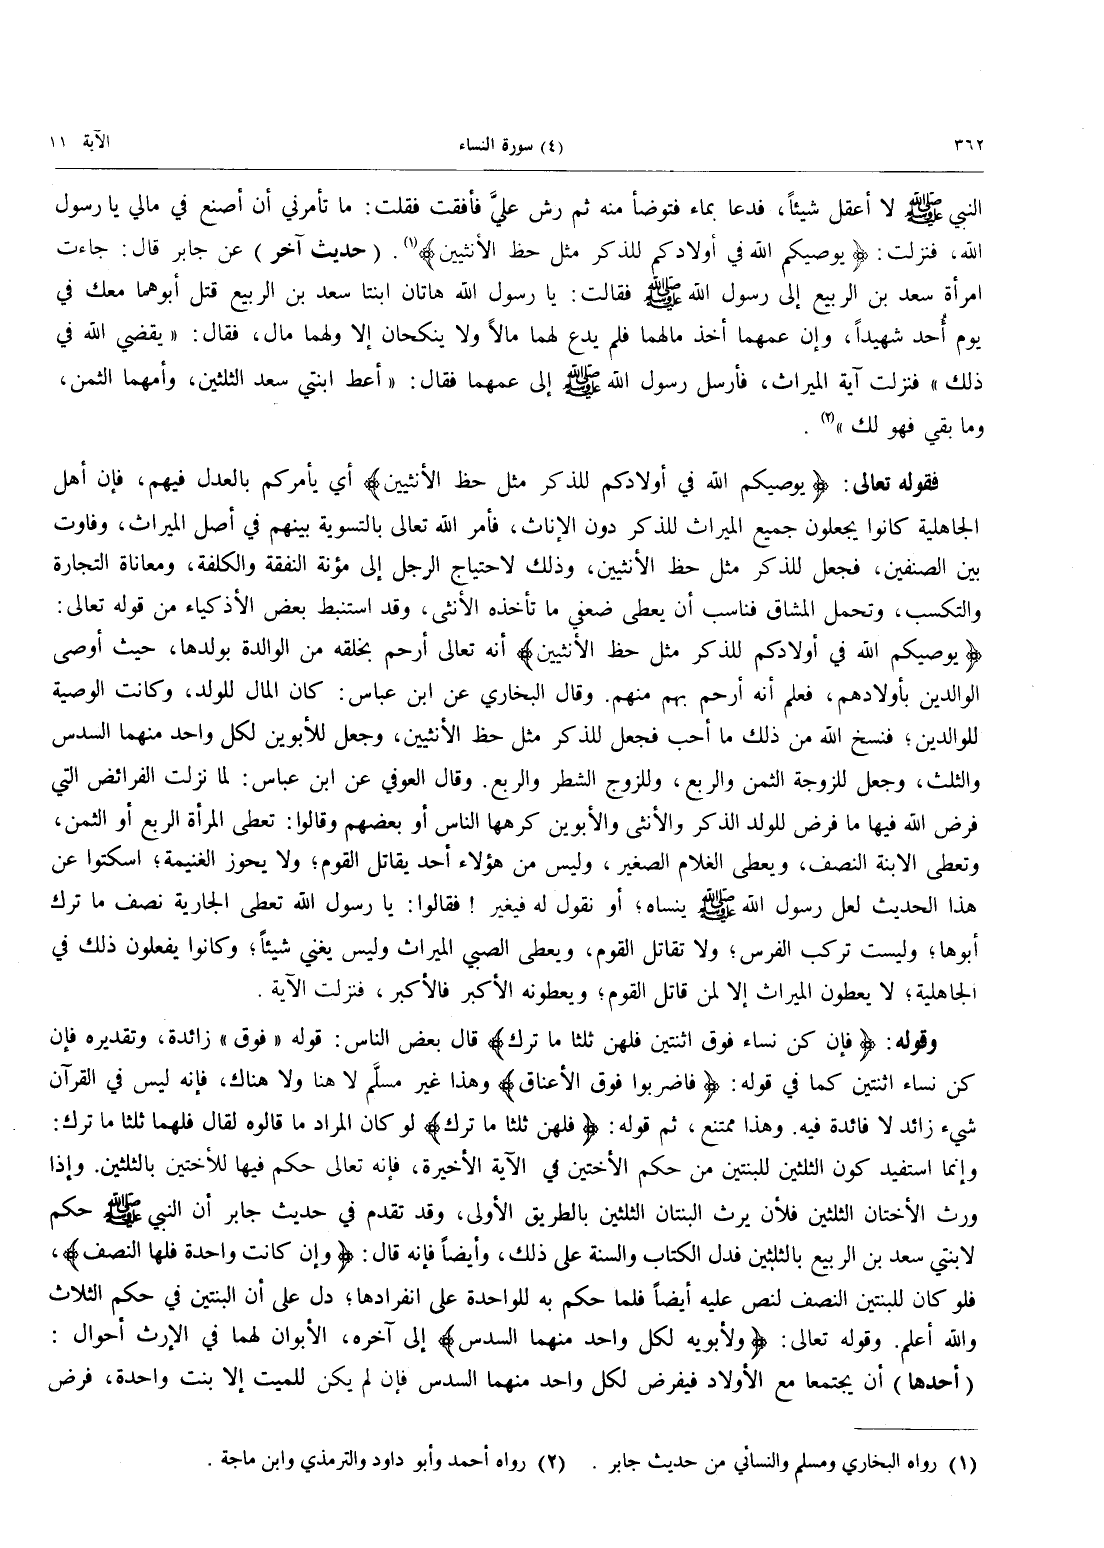 ٣٦٢ (٤) سورة النساء الآية ١١
النبي ﷺ لا أعقل شيئاً، فدعا بماء فتوضأ منه ثم رش عليَّ فأفقت فقلت: ما تأمرني أن أصنع في مالي يا رسول
الله، فنزلت: ﴿يوصيكم الله في أولادكم للذكر مثل حظ الأنثيين﴾(١). (حديث آخر) عن جابر قال: جاءت
امرأة سعد بن الربيع إلى رسول الله ﷺ فقالت: يا رسول الله هاتان ابنتا سعد بن الربيع قتل أبوهما معك في
يوم أُحد شهيداً، وإن عمهما أخذ مالهما فلم يدع لهما مالاً ولا ينكحان إلا ولهما مال، فقال: « يقضي الله في
ذلك » فنزلت آية الميراث، فأرسل رسول الله ﷺ إلى عمهما فقال: « أعط ابنتي سعد الثلثين، وأمهما الثمن،
وما بقي فهو لك »(٢) .
فقوله تعالى: ﴿يوصيكم الله في أولادكم للذكر مثل حظ الأنثيين﴾ أي يأمركم بالعدل فيهم، فإن أهل
الجاهلية كانوا يجعلون جميع الميراث للذكر دون الإناث، فأمر الله تعالى بالتسوية بينهم في أصل الميراث، وفاوت
بين الصنفين، فجعل للذكر مثل حظ الأنثيين، وذلك لاحتياج الرجل إلى مؤنة النفقة والكلفة، ومعاناة التجارة
والتكسب، وتحمل المشاق فناسب أن يعطى ضعفي ما تأخذه الأنثى، وقد استنبط بعض الأذكياء من قوله تعالى:
﴿يوصيكم الله في أولادكم للذكر مثل حظ الأنثيين﴾ أنه تعالى أرحم بخلقه من الوالدة بولدها، حيث أوصى
الوالدين بأولادهم، فعلم أنه أرحم بهم منهم. وقال البخاري عن ابن عباس: كان المال للولد، وكانت الوصية
للوالدين؛ فنسخ الله من ذلك ما أحب فجعل للذكر مثل حظ الأنثيين، وجعل للأبوين لكل واحد منهما السدس
والثلث، وجعل للزوجة الثمن والربع، وللزوج الشطر والربع. وقال العوفي عن ابن عباس: لما نزلت الفرائض التي
فرض الله فيها ما فرض للولد الذكر والأنثى والأبوين كرهها الناس أو بعضهم وقالوا: تعطى المرأة الربع أو الثمن،
وتعطى الابنة النصف، ويعطى الغلام الصغير، وليس من هؤلاء أحد يقاتل القوم؛ ولا يحوز الغنيمة؛ اسكتوا عن
هذا الحديث لعل رسول الله ﷺ ينساه؛ أو نقول له فيغير ! فقالوا: يا رسول الله تعطى الجارية نصف ما ترك
أبوها؛ وليست تركب الفرس؛ ولا تقاتل القوم، ويعطى الصبي الميراث وليس يغني شيئاً؛ وكانوا يفعلون ذلك في
الجاهلية؛ لا يعطون الميراث إلا لمن قاتل القوم؛ ويعطونه الأكبر فالأكبر، فنزلت الآية .
وقوله: ﴿فإن كن نساء فوق اثنتين فلهن ثلثا ما ترك﴾ قال بعض الناس: قوله « فوق » زائدة، وتقديره فإن
كن نساء اثنتين كما في قوله: ﴿فاضربوا فوق الأعناق﴾ وهذا غير مسلَّم لا هنا ولا هناك، فإنه ليس في القرآن
شيء زائد لا فائدة فيه. وهذا ممتنع، ثم قوله: ﴿فلهن ثلثا ما ترك﴾ لو كان المراد ما قالوه لقال فلهما ثلثا ما ترك:
وإنما استفيد كون الثلثين للبنتين من حكم الأختين في الآية الأخيرة، فإنه تعالى حكم فيها للأختين بالثلثين. وإذا
ورث الأختان الثلثين فلأن يرث البنتان الثلثين بالطريق الأولى، وقد تقدم في حديث جابر أن النبي ﷺ حكم
لابنتي سعد بن الربيع بالثلثين فدل الكتاب والسنة على ذلك، وأيضاً فإنه قال: ﴿وإن كانت واحدة فلها النصف﴾،
فلو كان للبنتين النصف لنص عليه أيضاً فلما حكم به للواحدة على انفرادها؛ دل على أن البنتين في حكم الثلاث
والله أعلم. وقوله تعالى: ﴿ولأبويه لكل واحد منهما السدس﴾ إلى آخره، الأبوان لهما في الإرث أحوال :
(أحدها) أن يجتمعا مع الأولاد فيفرض لكل واحد منهما السدس فإن لم يكن للميت إلا بنت واحدة، فرض
(١) رواه البخاري ومسلم والنسائي من حديث جابر . (٢) رواه أحمد وأبو داود والترمذي وابن ماجة .